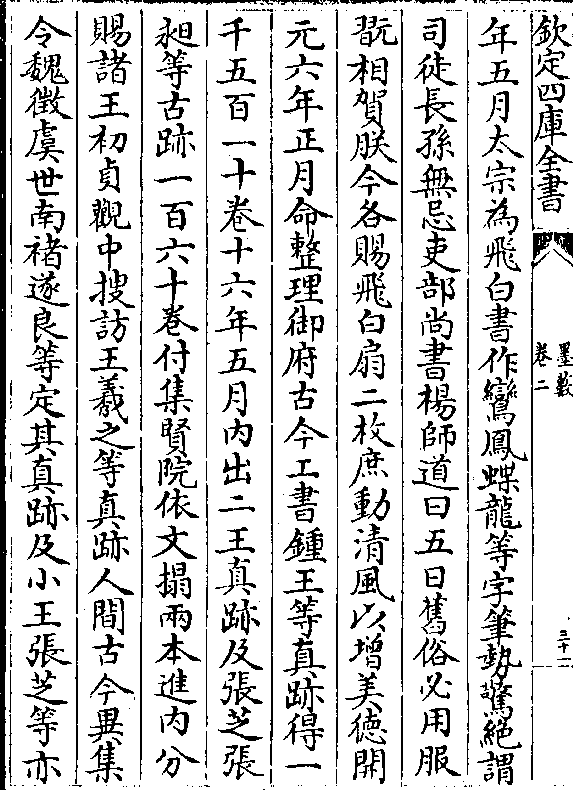 欽定四庫全書
墨藪
卷二
三十一
年五月太宗為飛白書作鸞鳳蝶龍等字筆勢驚絕謂
司徒長孫無忌吏部尚書楊師道曰五日舊俗必用服
翫相賀朕今各賜飛白扇二枚庶動清風以增美德開
元六年正月命整理御府古今工書鍾王等真跡得一
千五百一十卷十六年五月內出二王真跡及張芝張
昶等古跡一百六十卷付集賢院依文搨兩本進內分
賜諸王初貞觀中搜訪王羲之等真跡人間古今異集
令魏徵虞世南禇遂良等定其真跡及小王張芝等亦